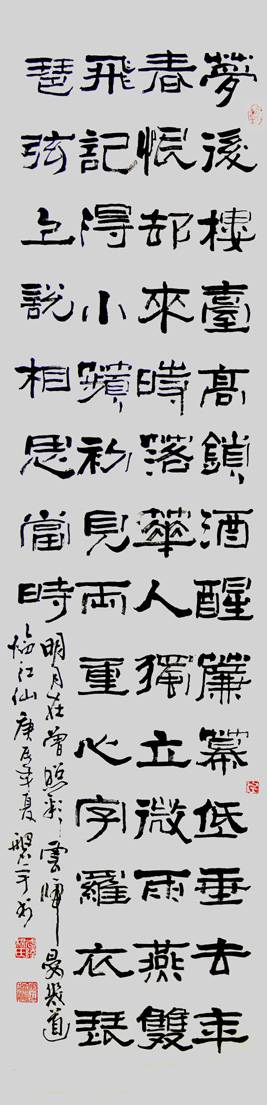 夢後樓臺高鎖酒醒簾幕低垂去年
春恨却來時落華人獨立微雨燕雙
飛記得小蘋初見兩重心字羅衣琵
琶弦上說相思當時
明月在曾照彩雲歸晏幾道
臨江仙庚辰年夏